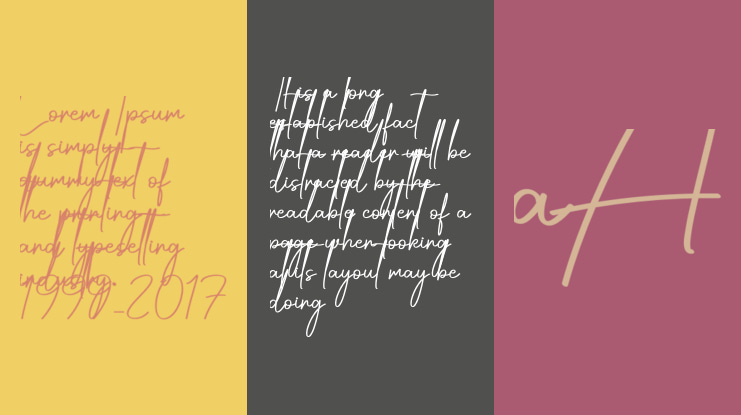 Lorem Ipsum
is simply
dummy text of
the printing
and typesetting
industry.
1990-2017
It is a long
established fact
that a reader will be
distracted by the
readable content of a
page when looking
at its layout may be
doing
aH